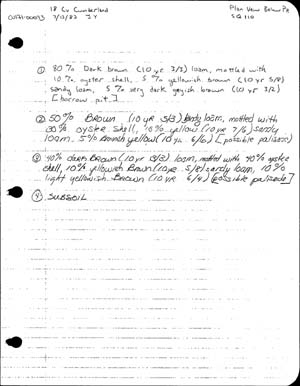 18 Cv Cumberland
Plan View Below PZ
7/12/83 J Y
SQ 110
① 80% Dark brown (10 yr 3/3) loam, mottled with
10% oyster shell, 5% yellowish brown (10 yr 5/8)
sandy loam, 5% very dark grayish brown (10 yr 3/2)
[borrow pit]
② 50% BROWN (10 yr 5/3) sandy loam, mottled with
oyster shell, 10% yellow (10 yr 7/6) sandy
loam, 5% brownish yellow (10 yr 6/6) [possible palisade]
③ 40% dark Brown (10 yr 3/3) loam, mottled with 40% oyster
shell, 10% yellowish Brown (10 yr 5/8) sandy loam, 10%
light yellowish Brown (10 yr 6/4) [possible palisade]
④ SUBSOIL